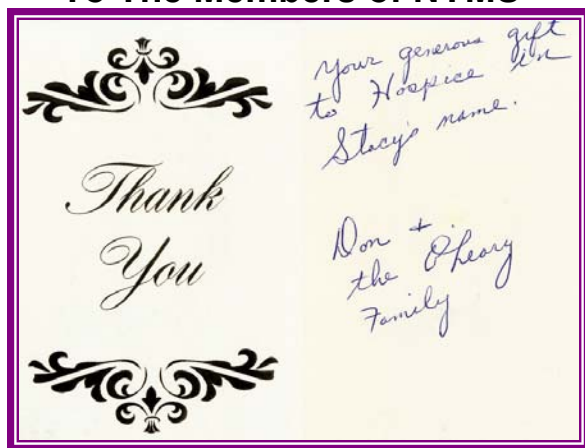 To The Members of
Thank
You
your generous gift
to Hospice in
Stacy's name.
Don +
the O'Leary
Family